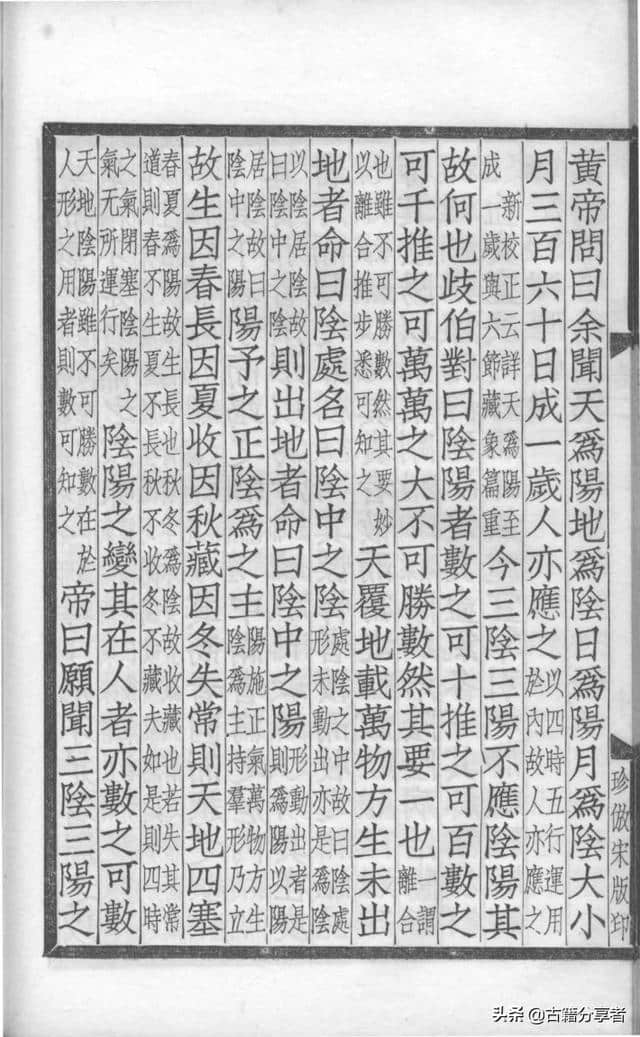 黃帝問曰余聞天爲陽地爲陰日爲陽月爲陰大小
月三百六十日成一歲人亦應之以四時五行運用於內故人亦應之
新校正云詳天爲陽至成一歲與六節藏象篇重今三陰三陽不應陰陽其
故何也歧伯對曰陰陽者數之可十推之可百數之
可千推之可萬萬之大不可勝數然其要一也一謂離合
也雖不可勝數然其要妙以離合推步悉可知之天覆地載萬物方生未出
地者命曰陰處名曰陰中之陰處陰之中故曰陰處形未動出亦是爲陰
以陰居陰故曰陰中之陰則出地者命曰陰中之陽形動出者是則爲陽以陽
居陰故曰陰中之陽陽予之正陰爲之主陽施正氣萬物方生陰爲主持羣形乃立
故生因春長因夏收因秋藏因冬失常則天地四塞
春夏爲陽故生長也秋冬爲陰故收藏也若失其常道則春不生夏不長秋不收冬不藏夫如是則四時
之氣閉塞陰陽之氣无所運行矣陰陽之變其在人者亦數之可數
天地陰陽雖不可勝數在於人形之用者則數可知之帝曰願聞三陰三陽之
珍倣宋版印
头条 @古籍分享者